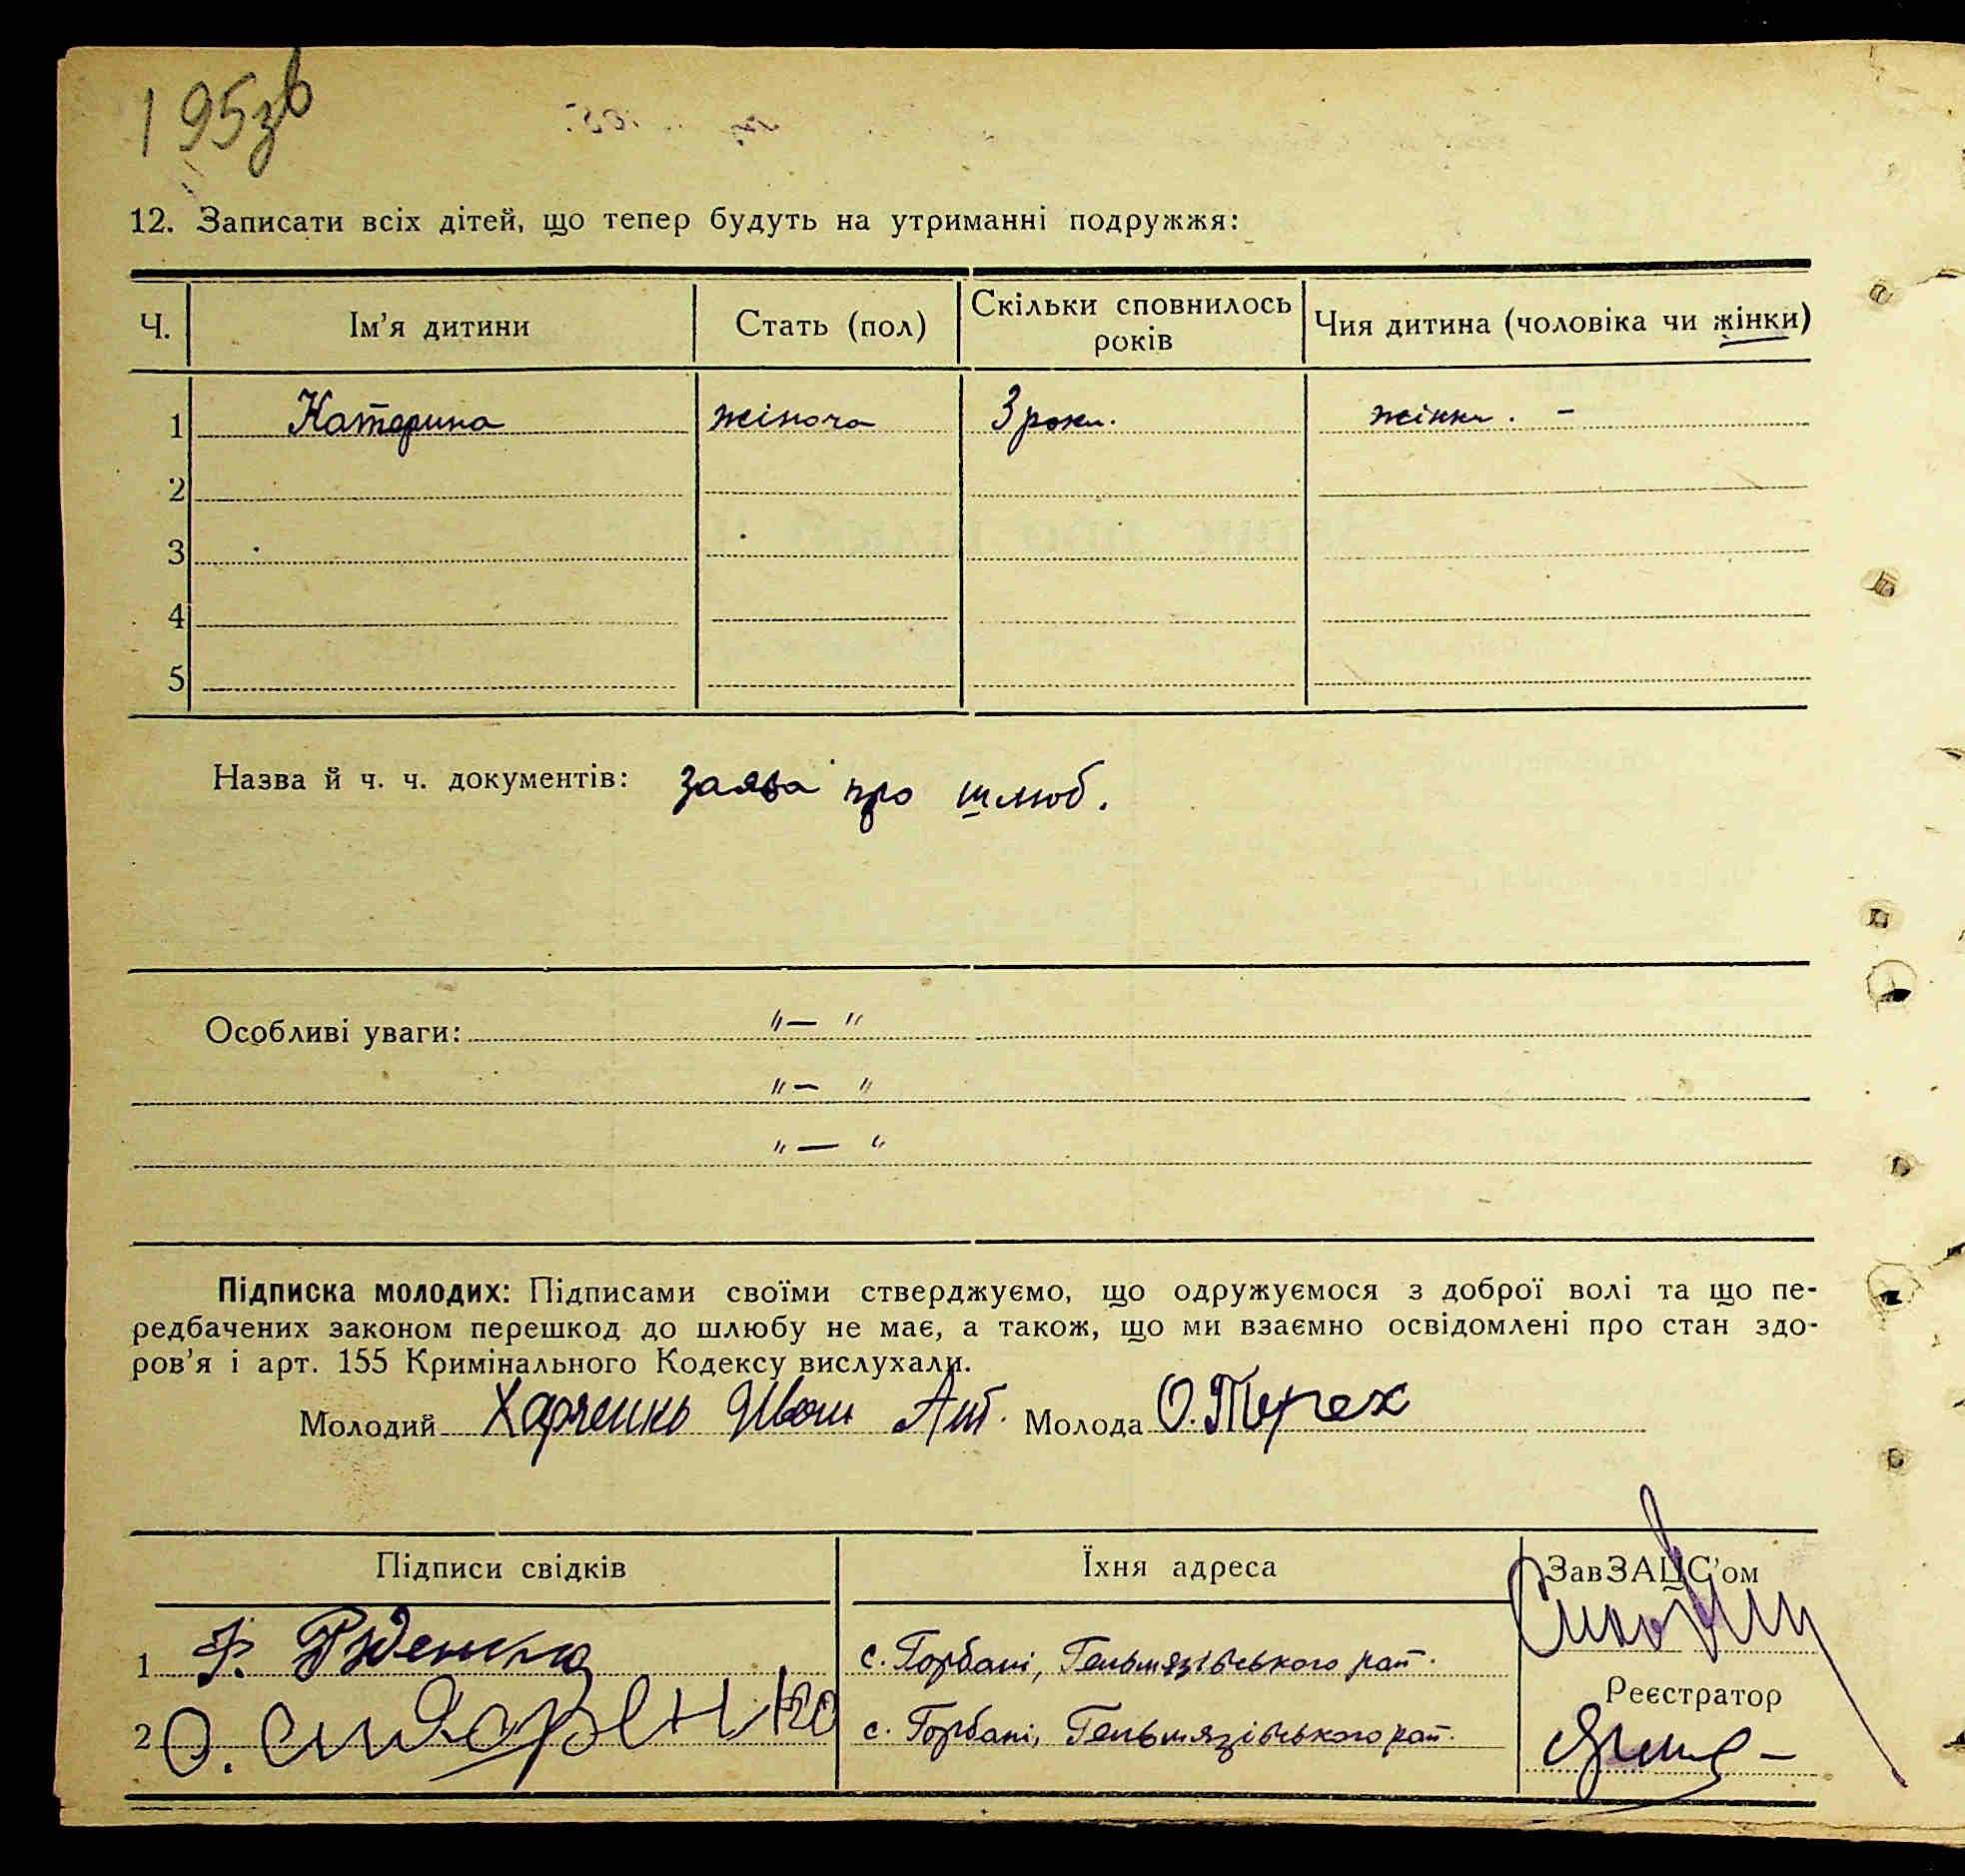 195зв
12. Записати всіх дітей, що тепер будуть на утриманні подружжя:
Ч. Ім'я дитини Стать (пол) Скільки сповнилось років Чия дитина (чоловіка чи жінки)
1 Катерина жіноча 3 роки. жінки. -
2
3
4
5
Назва й ч. ч. документів: заява про шлюб.
Особливі уваги: „— "
„— "
„— "
Підписка молодих: Підписами своїми стверджуємо, що одружуємося з доброї волі та що пе-
редбачених законом перешкод до шлюбу не має, а також, що ми взаємно освідомлені про стан здо-
ров'я і арт. 155 Кримінального Кодексу вислухали.
Молодий Харченко Иван Ант. Молода О. Терех
Підписи свідків Їхня адреса ЗавЗАЦС'ом
1 с. Горбані, Гельмязівського рай.
Реєстратор
2 О. Сидоренко с. Горбані, Гельмязівського рай.